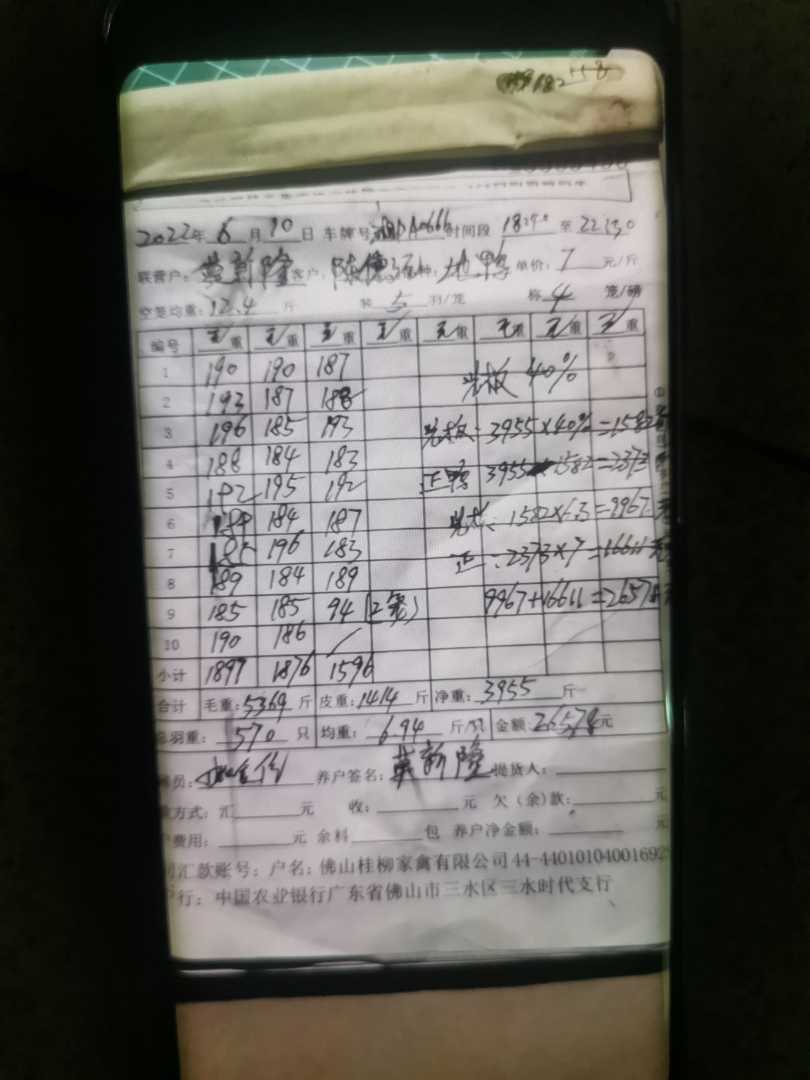 2022年6月10日 车牌号 时间段 18:20 至 22:30
联营户: 黄新隆 客户: 陈德 种: 地鸭 单价: 7 元/斤
空笼均重: 12.4 斤 装 5 羽/笼 称 4 笼/磅
编号 毛/重 毛/重 毛/重 毛/重 毛重 毛重 毛/重 毛/重
1 190 190 187 光板 40%
2 193 187 188
3 196 185 193 光板: 3955×40%=1582
4 188 184 183 正鸭 3955-1582=2373
5 182 195 192
6 184 187 光板: 1582×6.3=9967元
7 185 196 183 正: 2373×7=16611元
8 189 184 189
9 185 185 94 (2笼) 9967+16611=26578
10 190 186
小计 1897 1876 1596
合计 毛重: 5369 斤 皮重: 1414 斤 净重: 3955 斤
总羽重: 570 只 均重: 6.94 斤/只 金额: 26578元
员: 养户签名: 黄新隆 提货人:
方式: 汇 元 收: 元 欠(余)款: 元
费用: 元 余料 包 养户净金额: 元
汇款账号: 户名: 佛山桂柳家禽有限公司 44-44010104001692
行: 中国农业银行广东省佛山市三水区三水时代支行